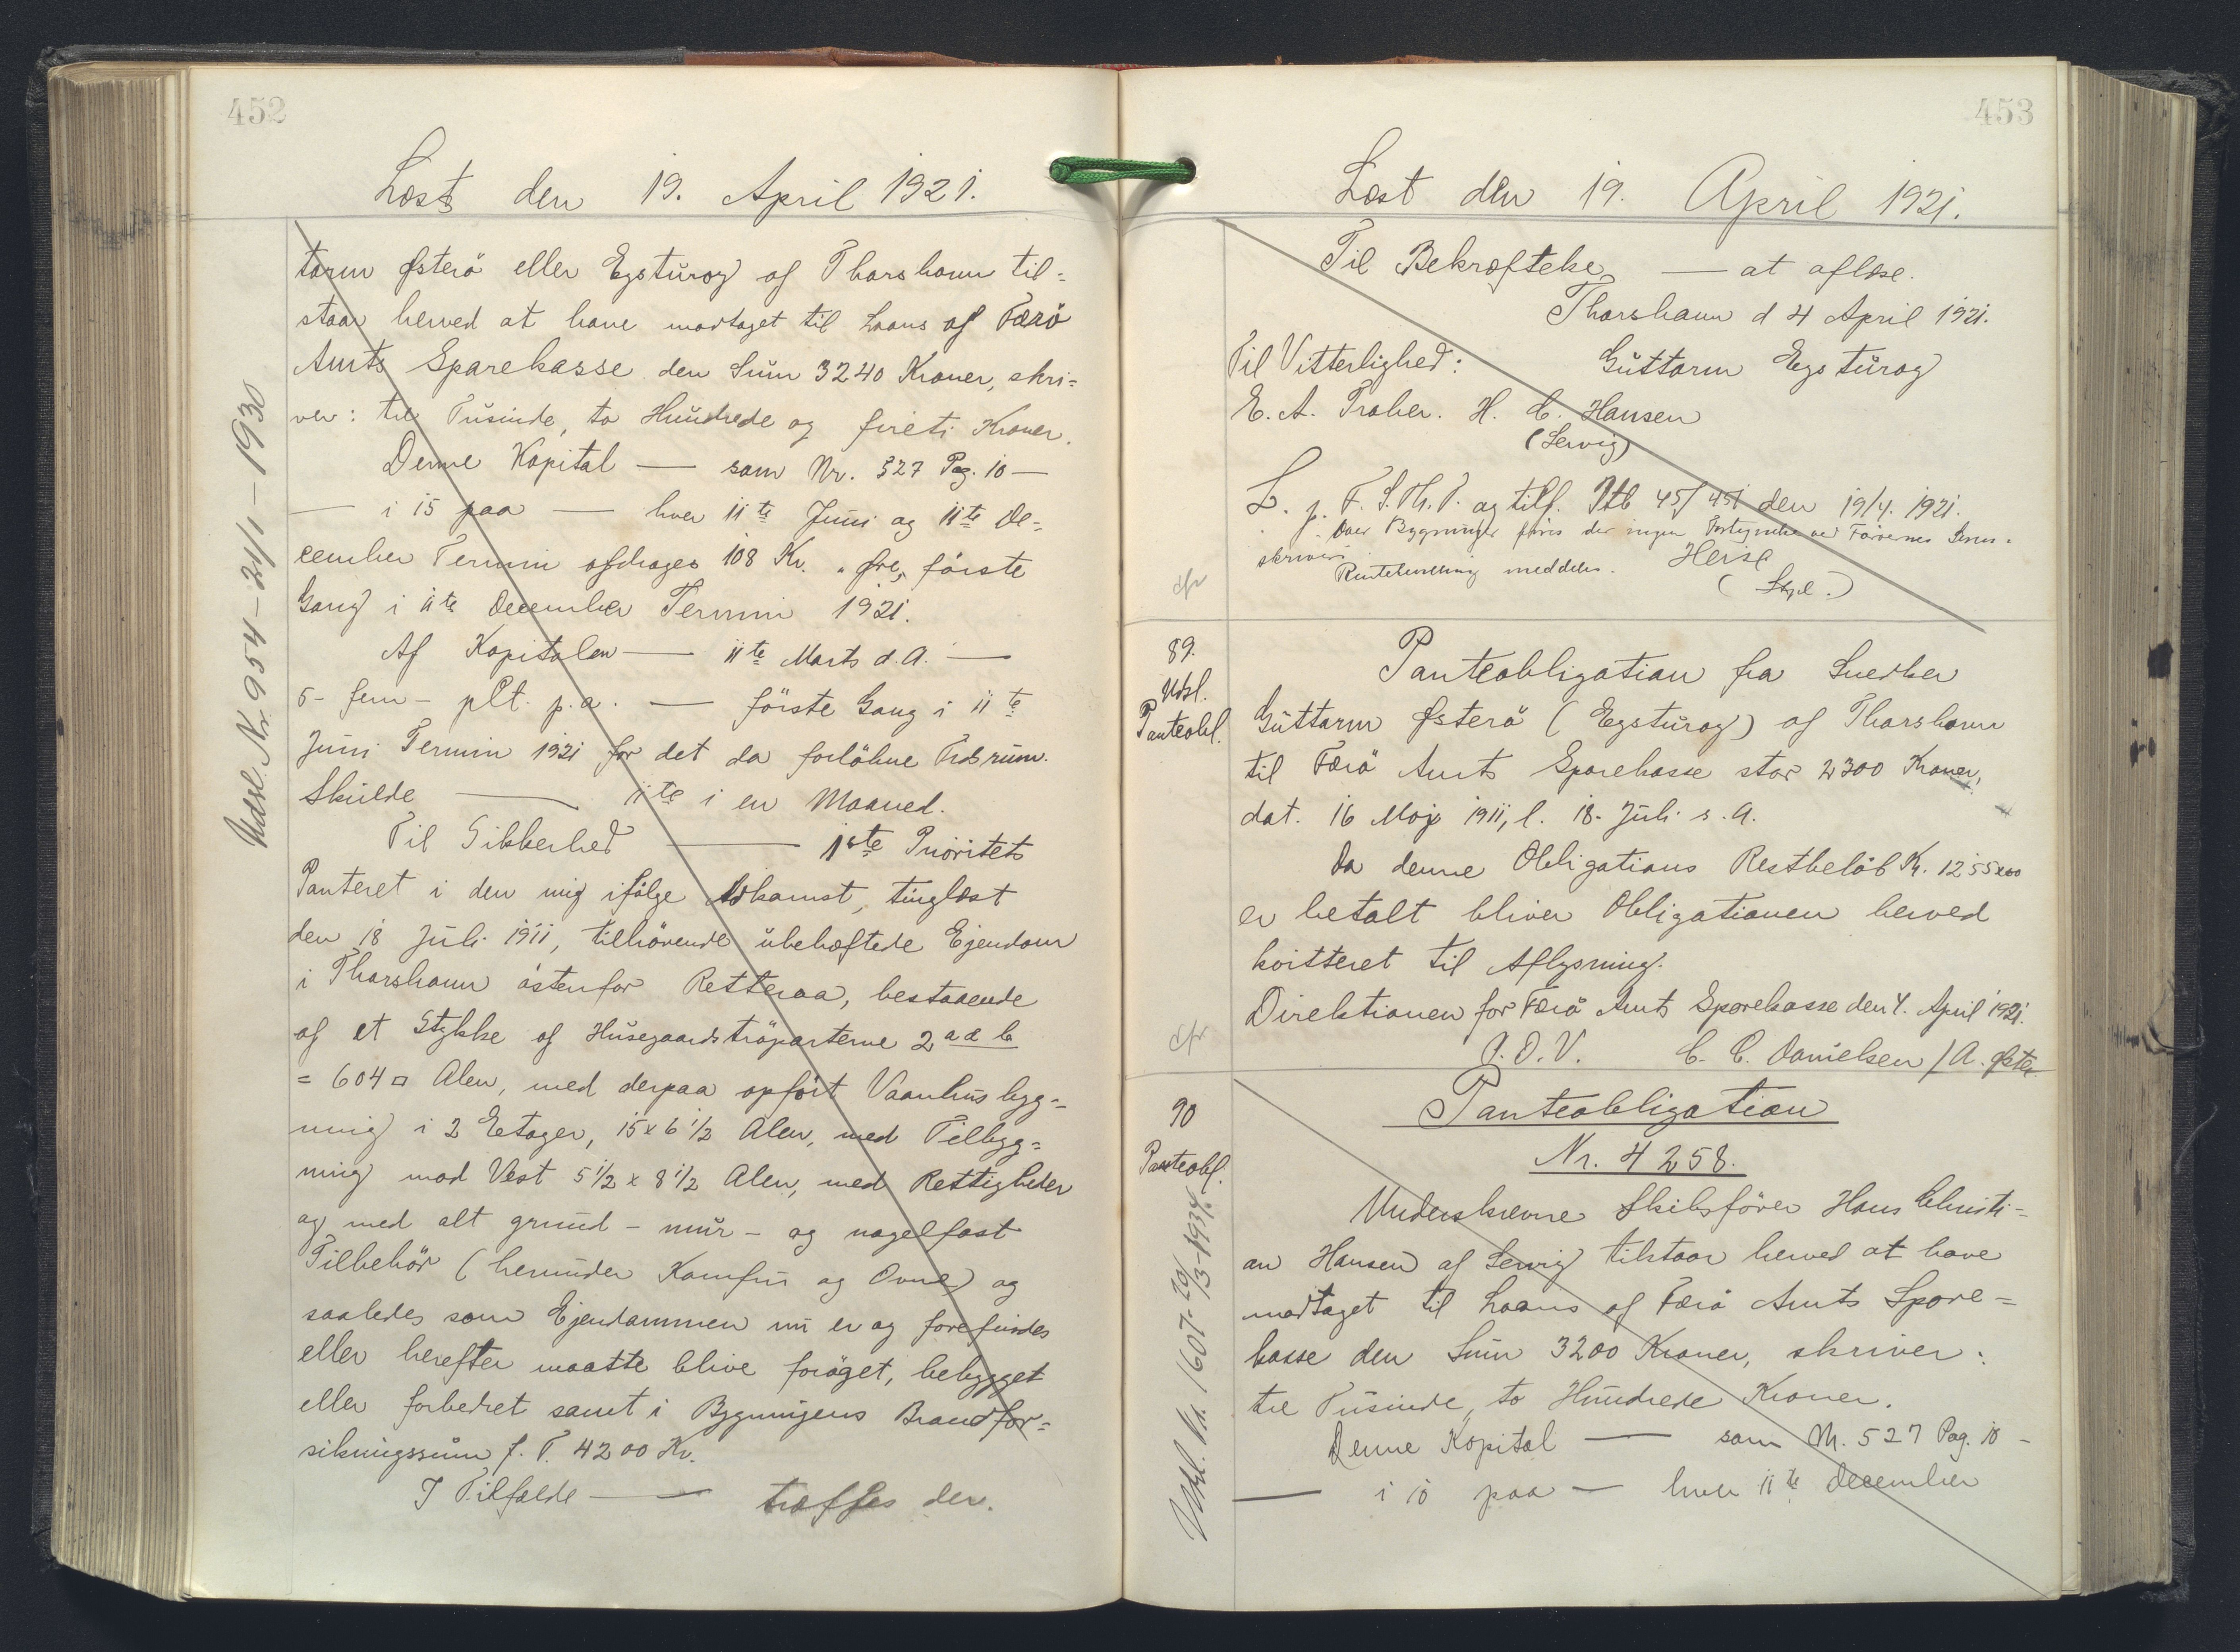 452
Læst den 19. April 1921.
Udsl. Nr. 954-24/1-1930
torm Østerö eller Egsturog af Thorshavn til=
staar herved at have modtaget til Laans af Færö
Amts Sparekasse den Sum 3240 Kroner, skri=
ver: tre Tusinde, to Hundrede og fireti Kroner.
Denne Kapital — som Nr. 527 Pag. 10 —
— i 15 paa — hver 11te Juni og 11te De=
cember Termin afdrages 108 Kr. „ Øre, förste
Gang i 11te December Termin 1921.
Af Kapitalen — 11te Marts d. A. —
5 - fem - pCt. p. a. — förste Gang i 11te
Juni Termin 1921 for det da forlöbne Tidsrum.
Skulde — 11te i en Maaned.
Til Sikkerhed — 1ste Prioritets
Panteret i den mig ifölge Adkomst, tinglæst
den 18 Juli 1911, tilhörende ubehæftede Ejendom
i Thorshavn östenfor Retteraa, bestaaende
af et Stykke af Husegaards tröparterne 2 a & b
= 604 □ Alen, med derpaa opfört Vaanhusbyg=
ning i 2 Etager, 15 x 6 1/2 Alen, med Tilbyg=
ning mod Vest 5 1/2 x 8 1/2 Alen, med Rettigheder
og med alt grund - mur - og nagelfast
Tilbehör (herunder Komfur og Ovne) og
saaledes som Ejendommen nu er og forefindes
eller herefter maatte blive foröget, bebygget
eller forbedret samt i Bygningens Brandfor=
sikringssum f. T. 4200 Kr.
I Tilfælde — træffes der.
453
Læst den 19. April 1921.
Til Bekræftelse — at aflæse.
Thorshavn d 4 April 1921.
Til Vitterlighed: Guttorm Egsturog
E. A. Troher. H. C. Hansen
(Lervig)
L. p. F. S. Th. T. og tilf. Ptb 451 den 19/4. 1921.
Over Bygninger föres der ingen ved Færöernes Soren=
skriveri
Rentehenstand meddeles. Heise
cfr
89.
Udsl.
Panteobl.
Panteobligation fra Snedker
Guttorm Østerö (Egsturog) af Thorshavn
til Færö Amts Sparekasse stor 2300 Kroner,
dat. 16 Maj 1911, l. 18. Juli s. A.
Da denne Obligations Restbelöb Kr. 1255x00
er betalt bliver Obligationen herved
kvitteret til Aflysning.
Direktionen for Færö Amts Sparekasse den 4. April 1921.
P. D. V. C. C. Danielsen / A. Öster
cfr
90
Panteobl.
Udsl. Nr. 1607-20/3-1934
Panteobligation
Nr. 4258.
Underskrevne Skibsförer Hans Christi=
an Hansen af Lervig tilstaar herved at have
modtaget til Laans af Færö Amts Spare=
kasse den Sum 3200 Kroner, skriver:
tre Tusinde, to Hundrede Kroner.
Denne Kapital — som Nr. 527 Pag. 10 -
— i 10 paa — hver 11te December